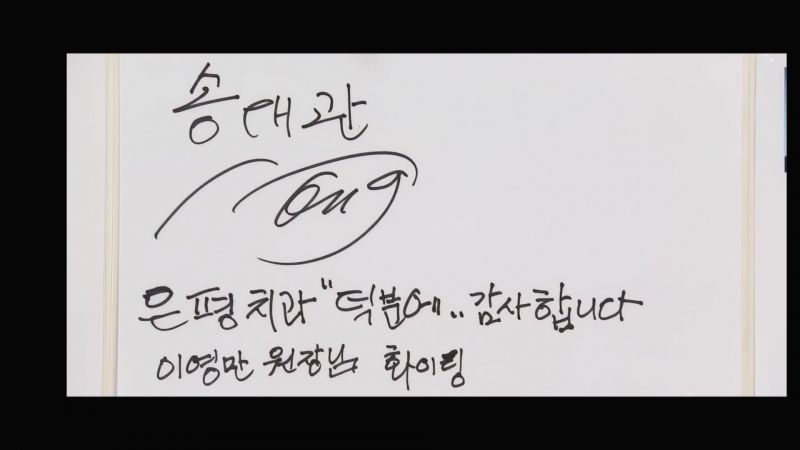 송대관
song
은평치과" 덕분에.. 감사합니다
이영만 원장님 화이팅